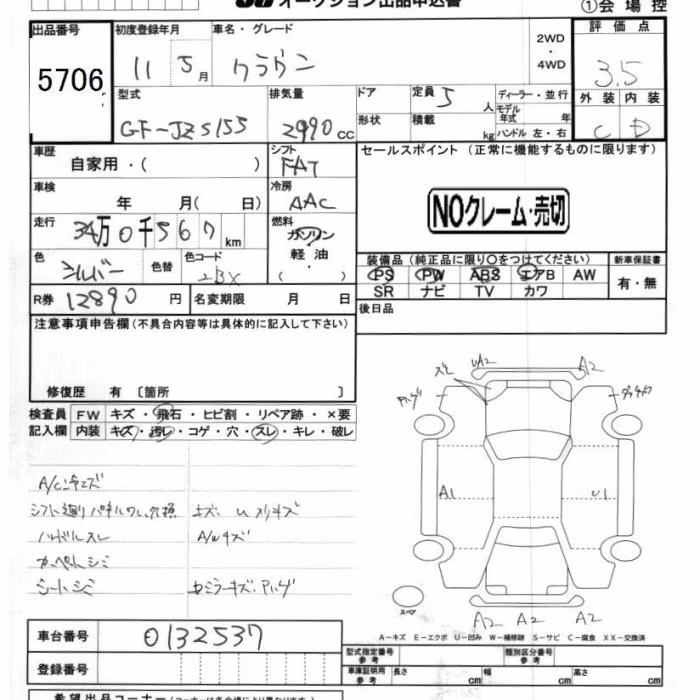 オークション出品申込書
①会場控
出品番号 初度登録年月 車名・グレード 2WD・4WD 評価点
5706 11 5月 クラウン 3.5
型式 排気量 ドア 定員 5人 ディーラー・並行 外装 内装
GF-JZS155 2990cc 形状 積載 kg モデル年式 年 ハンドル 左・右 C D
車歴 自家用・( ) シフト FAT セールスポイント(正常に機能するものに限ります)
車検 年 月( 日) 冷房 AAC NOクレーム・売切
走行 34万0千567km 燃料 ガソリン・軽油・( )
色 シルバー 色替 色コード 2BX 装備品(純正品に限り○をつけてください) 新車保証書
PS PW ABS エアB AW 有・無
SR ナビ TV カワ
R券 12890円 名変期限 月 日 後日品
注意事項申告欄(不具合内容等は具体的に記入して下さい)
修復歴 有 〔箇所 〕
検査員記入欄 FW キズ・飛石・ヒビ割・リペア跡・×要
内装 キズ・汚レ・コゲ・穴・スレ・キレ・破レ
UA2 A2
スレ
A1 U1
シフト廻りパネルワレ、欠損
ハンドルスレ A/Wキズ
カーペットシミ
シートシミ
スペア
A2 A2 A2
A-キズ E-エクボ U-凹み W-補修跡 S-サビ C-腐食 XX-交換済
車台番号 0132537
型式指定番号 参考 類別区分番号 参考
登録番号 車庫証明用 参考 長さ cm 幅 cm 高さ cm
希望出品コーナー